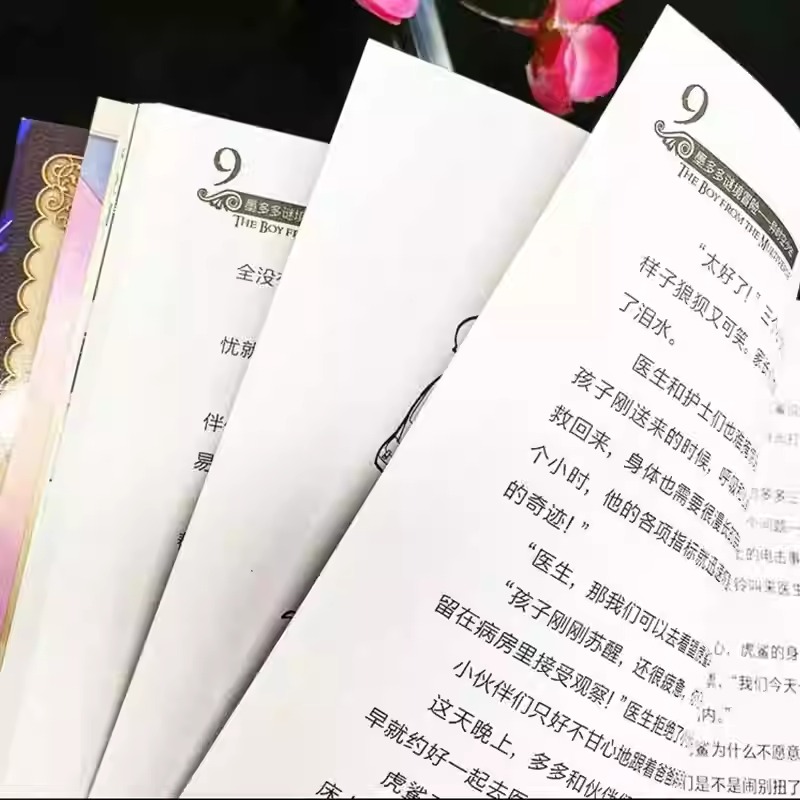 9
墨多多谜境
THE BOY FR
全没
忧就
伴
易
9
墨多多谜境冒险
THE BOY FROM THE MULTIVERSE
“太好了！”三
样子狼狈又可笑。家长
了泪水。
医生和护士们也连连
孩子刚送来的时候，呼吸
救回来，身体也需要很漫长的
个小时，他的各项指标就迅速
的奇迹！”
“医生，那我们可以去看望
“孩子刚刚苏醒，还很疲惫，
留在病房里接受观察！”医生拒绝了
小伙伴们只好不甘心地跟着爸爸
这天晚上，多多和伙伴
早就约好一起去医
虎鲨
床
多多三
个问题一
的电击事
铃叫来医生
心，虎鲨的身
“我们今天
内。”
鲨为什么不愿意
们是不是闹别扭了